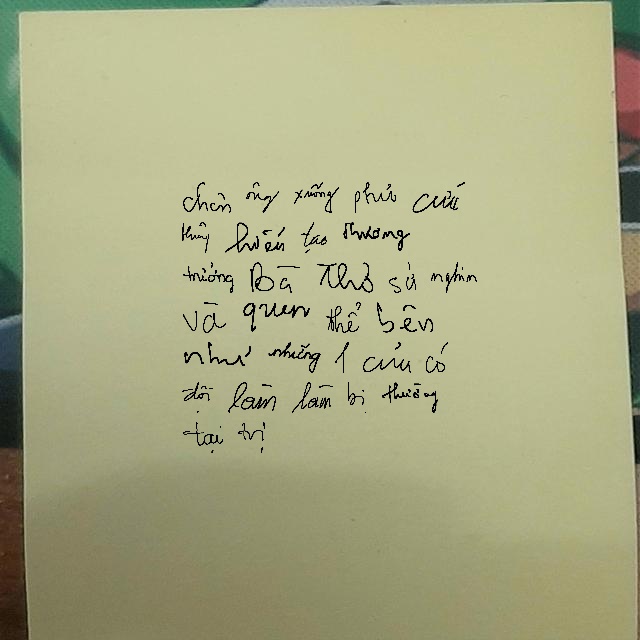 chân ông xuống phủ cứu
thấy hiến tạo thương
trưởng Bà Thở sử nghìn
và quen thể bên
như những 1 cửu có
đội làm làm bị thường
tại trị